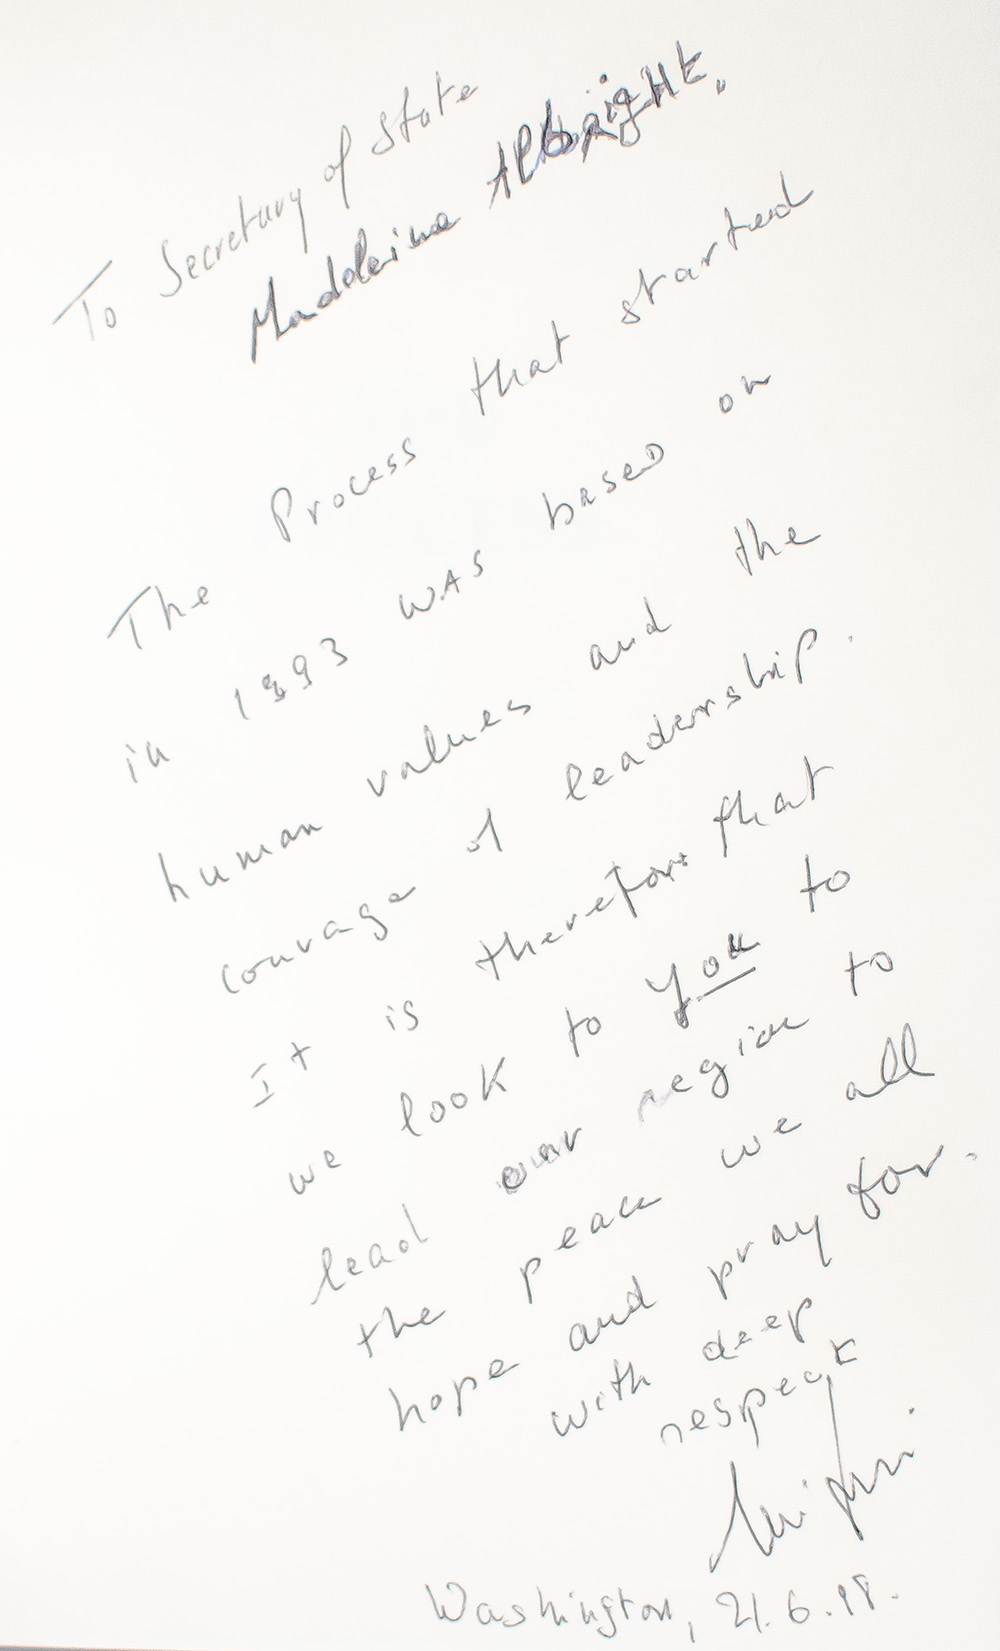 To Secretary of State
Madeleine Albright.
The Process that started
in 1993 was based on
human values and the
courage of leadership.
It is therefore that
we look to you to
lead our region to
the peace we all
hope and pray for.
with deep
respect
Washington, 21.6.98.